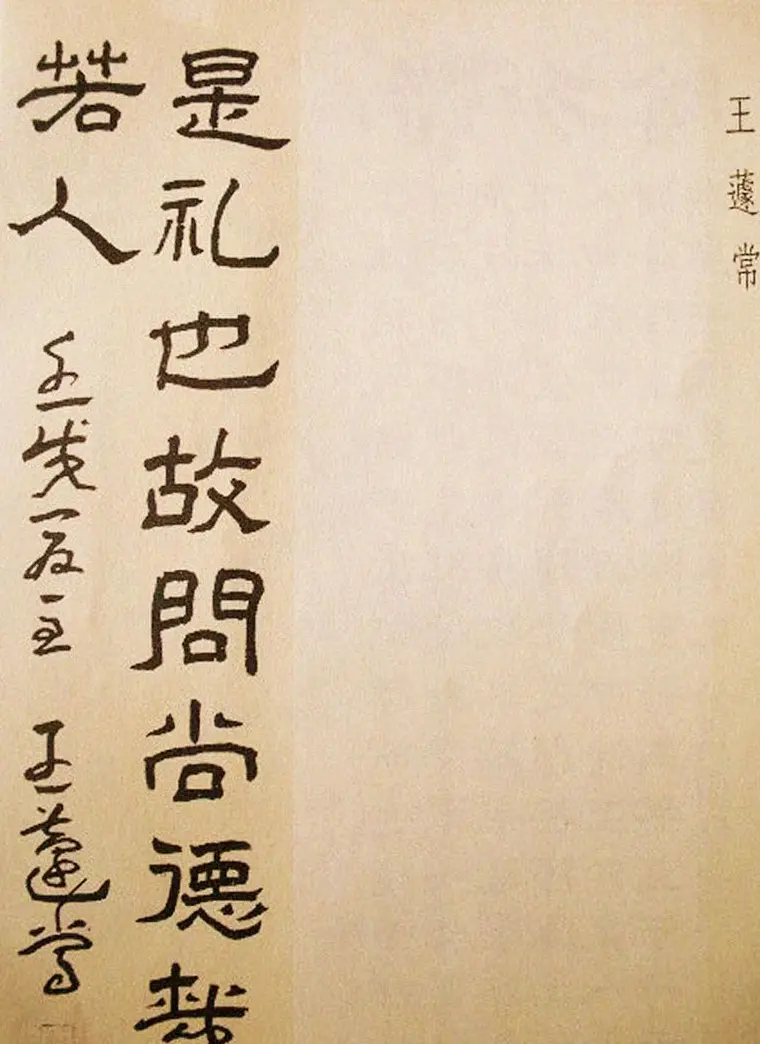 王蘧常
是礼也故問尚德哉
若人
壬戌 王蘧常